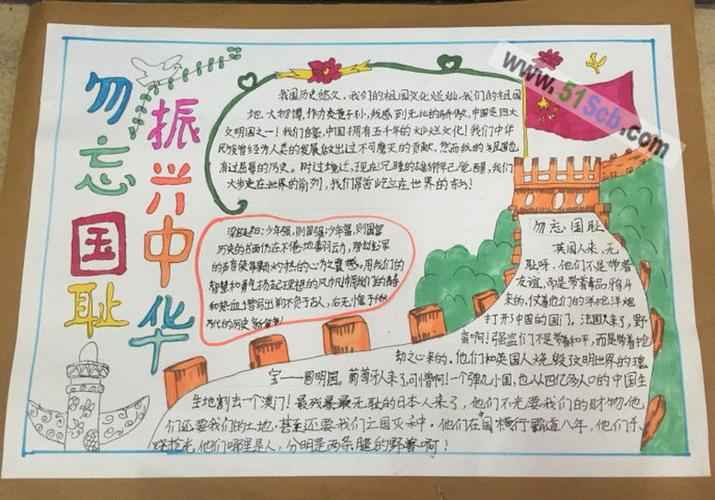 勿忘国耻
振兴中华
www.51Scb.com
我国历史悠久,我们的祖国文化灿烂,我们的祖国
地大物博,
中国是四大
文明国之一!我们自豪,中国拥有五千年的灿烂文化!我们中华
民族曾经为人类的发展做出过不可磨灭的贡献,然而我的祖国也
有过屈辱的历史。时过境迁,现在沉睡的雄狮早已觉醒,我们
大步走在世界的前列,我们屹立在世界的
少年强,则国强,少年富,则国富
历史的
的声音
我们的
智慧和勇气扬起理想的风帆用我们的
和热血谱写出前不负于古人,后无愧于
代的历史新篇章!
勿忘国耻
英国人来,无
耻呀,他们不是带着
友谊,而是带着毒品鸦片
来的,仗着他们的洋枪洋炮
打开了中国的国门。法国人来了,野
蛮啊!强盗们不是带着和平,而是带着抢
劫之心来的,他们和英国人烧毁文明世界的瑰
宝——圆明园。葡萄牙人来了,可憎啊!一个弹丸小国,也从四亿多人口的中国生
生地割去一个澳门!最残暴最无耻的日本人来了,他们不光要我们的财物,他
们还要我们的土地,甚至还要我们亡国灭种。他们在中国横行霸道八年,他们杀
烧抢光,他们哪里是人,分明是两条腿的野兽啊!